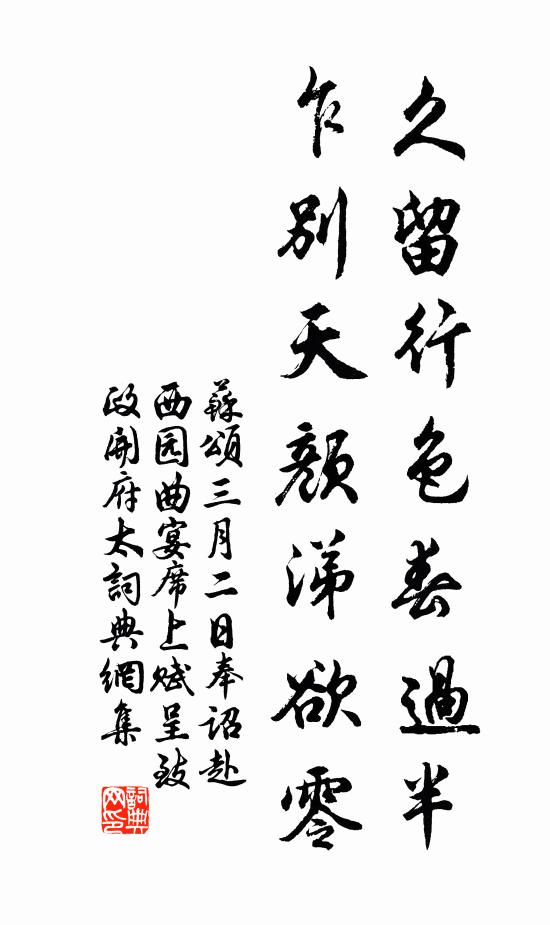 久留行色春過半
乍別天顏涕欲零
蘇頌三月二日奉詔赴
西园曲宴席上赋呈致
政開府太詞典網集
詞典网印